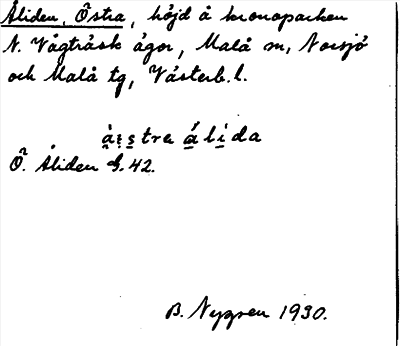 Åliden, Östra, höjd å kronoparken
N. Vägträsk ägor, Malå sn, Norsjö
och Malå tg, Västerb. l.
àustra álida
Ö. Åliden G. 42.
B. Nygren 1930.